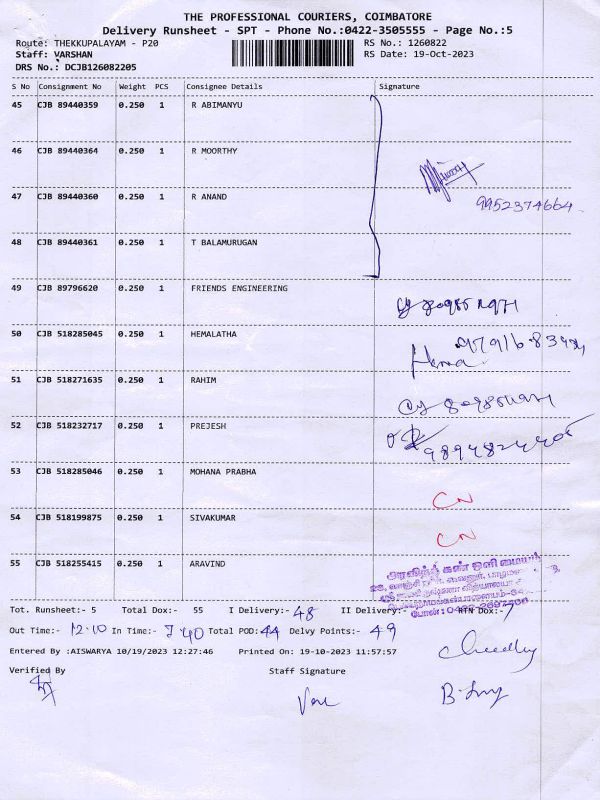 THE PROFESSIONAL COURIERS, COIMBATORE
Delivery Runsheet - SPT - Phone No.:0422-3505555 - Page No.:5
Route: THEKKUPALAYAM - P20
RS No.: 1260822
Staff: VARSHAN
RS Date: 19-Oct-2023
DRS No.: DCJB126082205
S No Consignment No Weight PCS Consignee Details Signature
45 CJB 89440359 0.250 1 R ABIMANYU
46 CJB 89440364 0.250 1 R MOORTHY
47 CJB 89440360 0.250 1 R ANAND
9952374664
48 CJB 89440361 0.250 1 T BALAMURUGAN
49 CJB 89796620 0.250 1 FRIENDS ENGINEERING
50 CJB 518285045 0.250 1 HEMALATHA
Hema
51 CJB 518271635 0.250 1 RAHIM
52 CJB 518232717 0.250 1 PREJESH
53 CJB 518285046 0.250 1 MOHANA PRABHA
CN
54 CJB 518199875 0.250 1 SIVAKUMAR
CN
55 CJB 518255415 0.250 1 ARAVIND
அரவிந்த் கண் ஒளி மையம்
Tot. Runsheet:- 5 Total Dox:- 55 I Delivery:- 48 II Delivery:- RTN Dox:- 7
Out Time:- 12.10 In Time:- 7.40 Total POD: 44 Delvy Points:- 49
Entered By :AISWARYA 10/19/2023 12:27:46 Printed On: 19-10-2023 11:57:57
Verified By Staff Signature